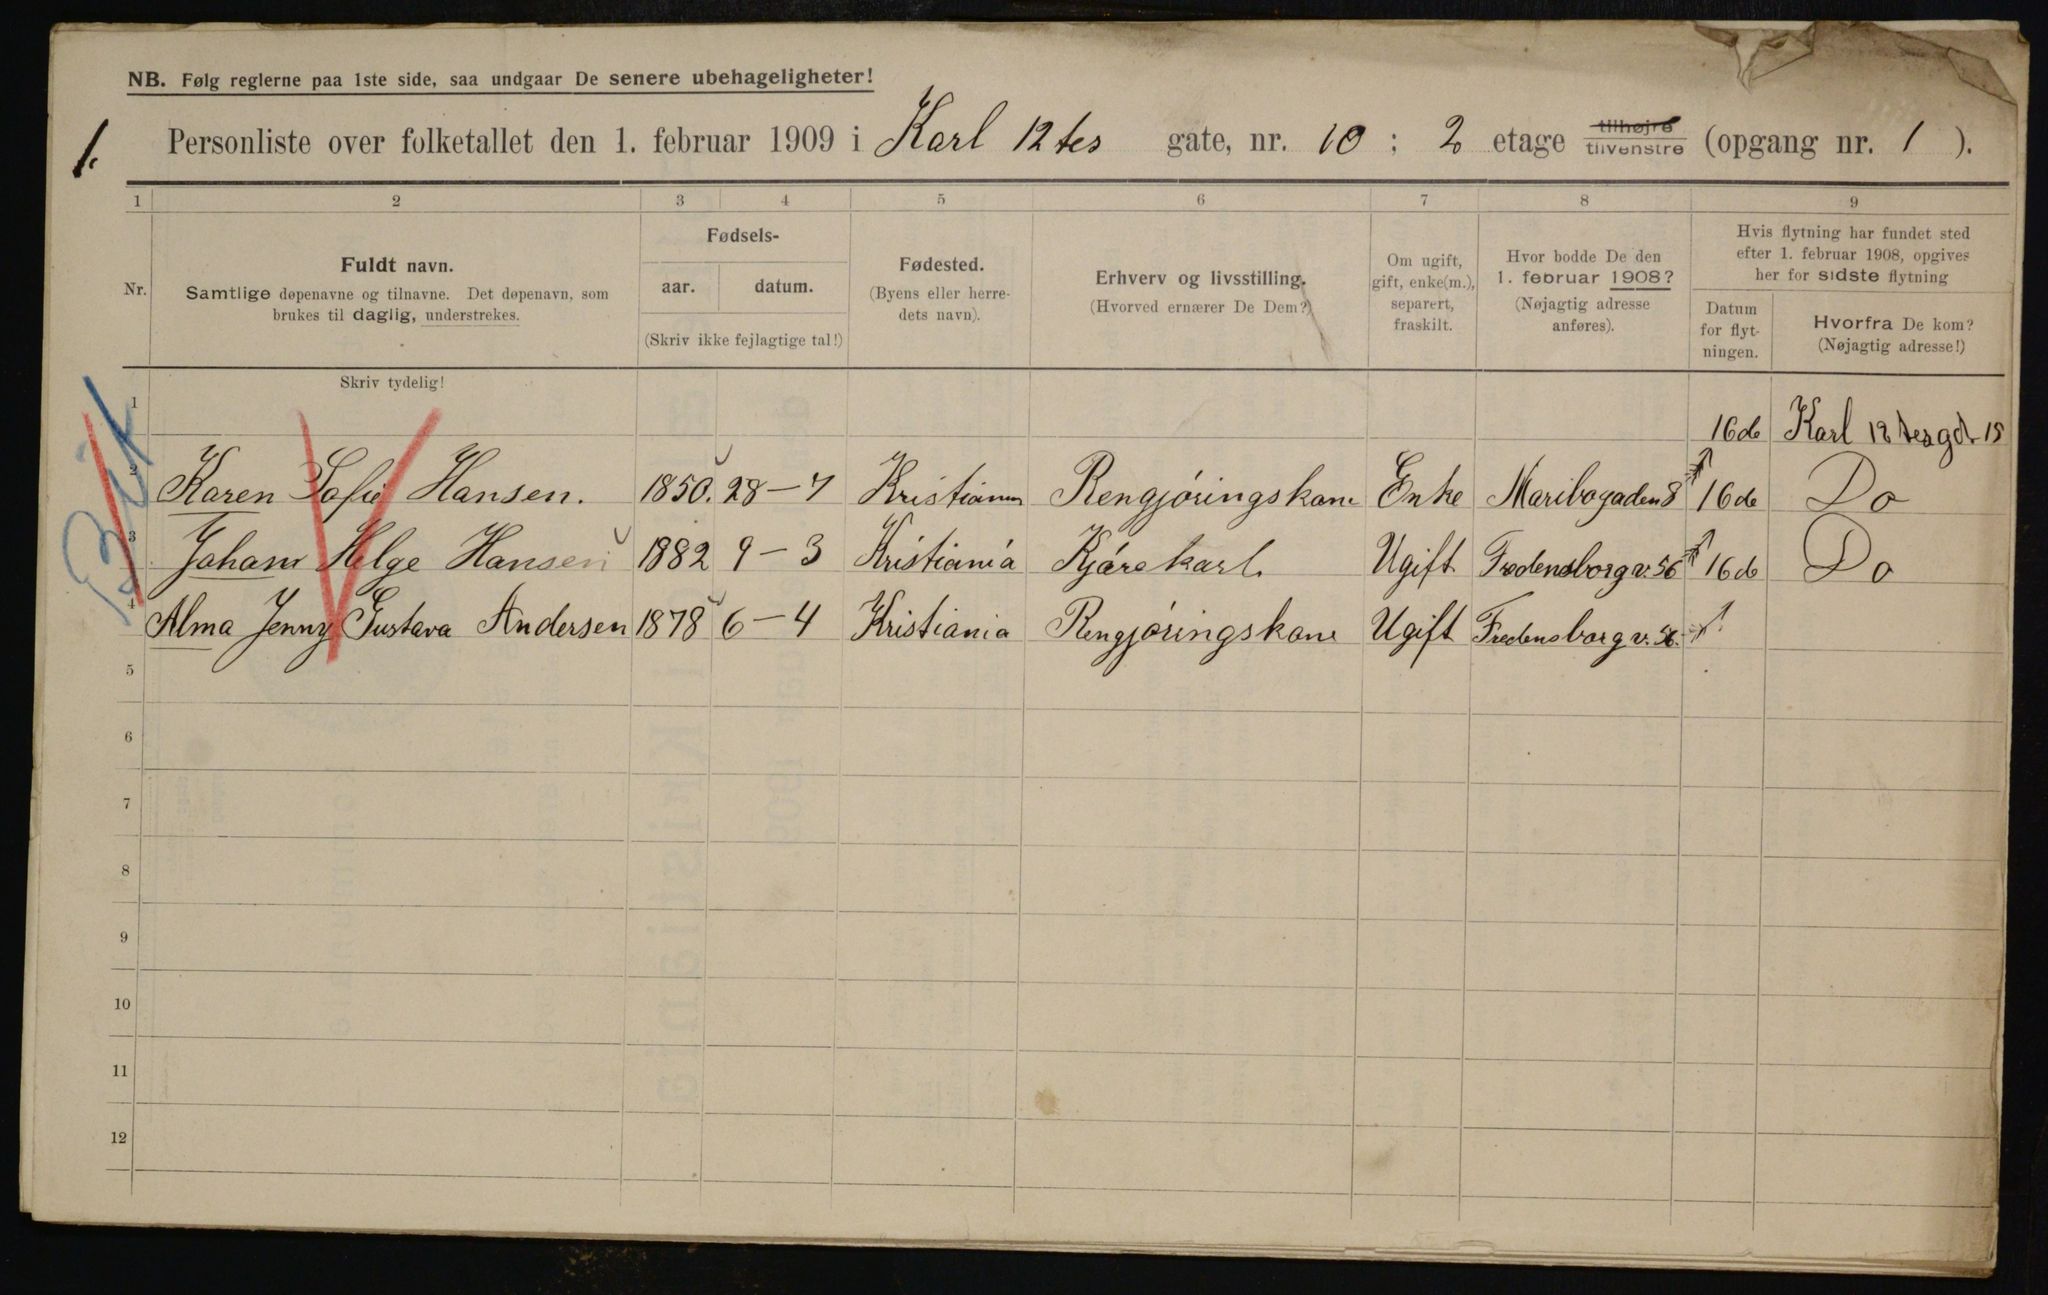 NB. Følg reglerne paa 1ste side, saa undgaar De senere ubehageligheter!
1. Personliste over folketallet den 1. februar 1909 i Karl 12tes gate, nr. 10 ; 2 etage tilhøjre tilvenstre (opgang nr. 1 ).
1 2 3 4 5 6 7 8 9
Nr.
Fuldt navn.
Samtlige døpenavne og tilnavne. Det døpenavn, som
brukes til daglig, understrekes.
Skriv tydelig!
Fødsels-
aar. datum.
(Skriv ikke fejlagtige tal!)
Fødested.
(Byens eller herre-
dets navn).
Erhverv og livsstilling.
(Hvorved ernærer De Dem?)
Om ugift,
gift, enke(m.),
separert,
fraskilt.
Hvor bodde De den
1. februar 1908?
(Nøjagtig adresse
anføres).
Hvis flytning har fundet sted
efter 1. februar 1908, opgives
her for sidste flytning
Datum
for flyt-
ningen.
Hvorfra De kom?
(Nøjagtig adresse!)
1 16de Karl 12tesgd. 15
2 Karen Sofie Hansen. 1850. 28-7 Kristiania Rengjøringskone Enke Maribogaden 8 16de Do
3 Johan Helge Hansen 1882 9-3 Kristiania Kjørekarl. Ugift Fredensborgv. 56 16de Do
4 Alma Jenny Gustava Andersen 1878 6-4 Kristiania Rengjøringskone Ugift Fredensborgv. 56.
5
6
7
8
9
10
11
12